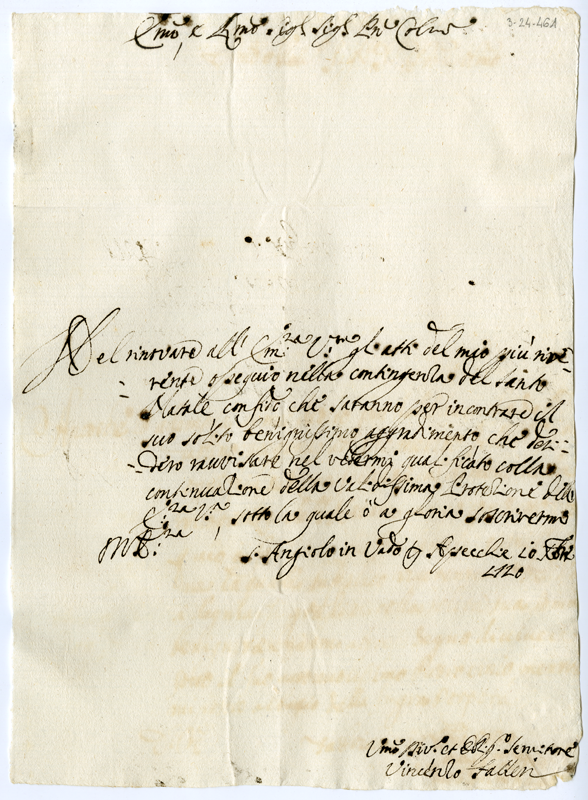 3-24-46A
Emo, e Rmo Sig.r Sig.r Pne Colmo
Nel rinovare all' Em.za V.ra gli atti del mio più rive=
=rente ossequio nella contingenza del Santo
Natale confido che saranno per incontrare il
suo solito benignissimo aggradimento che desi=
=dero ravvisare nel vedermi qualificato colla
continuazione della Validissima Protezione dell'
E.za V.ra, sotto la quale ò a gloria soscrivermi
S. Angiolo in Vado Apecchie 20 Xbre
1720
Umo Divo et Obl.mo Servitore
Vincenzo Falleri